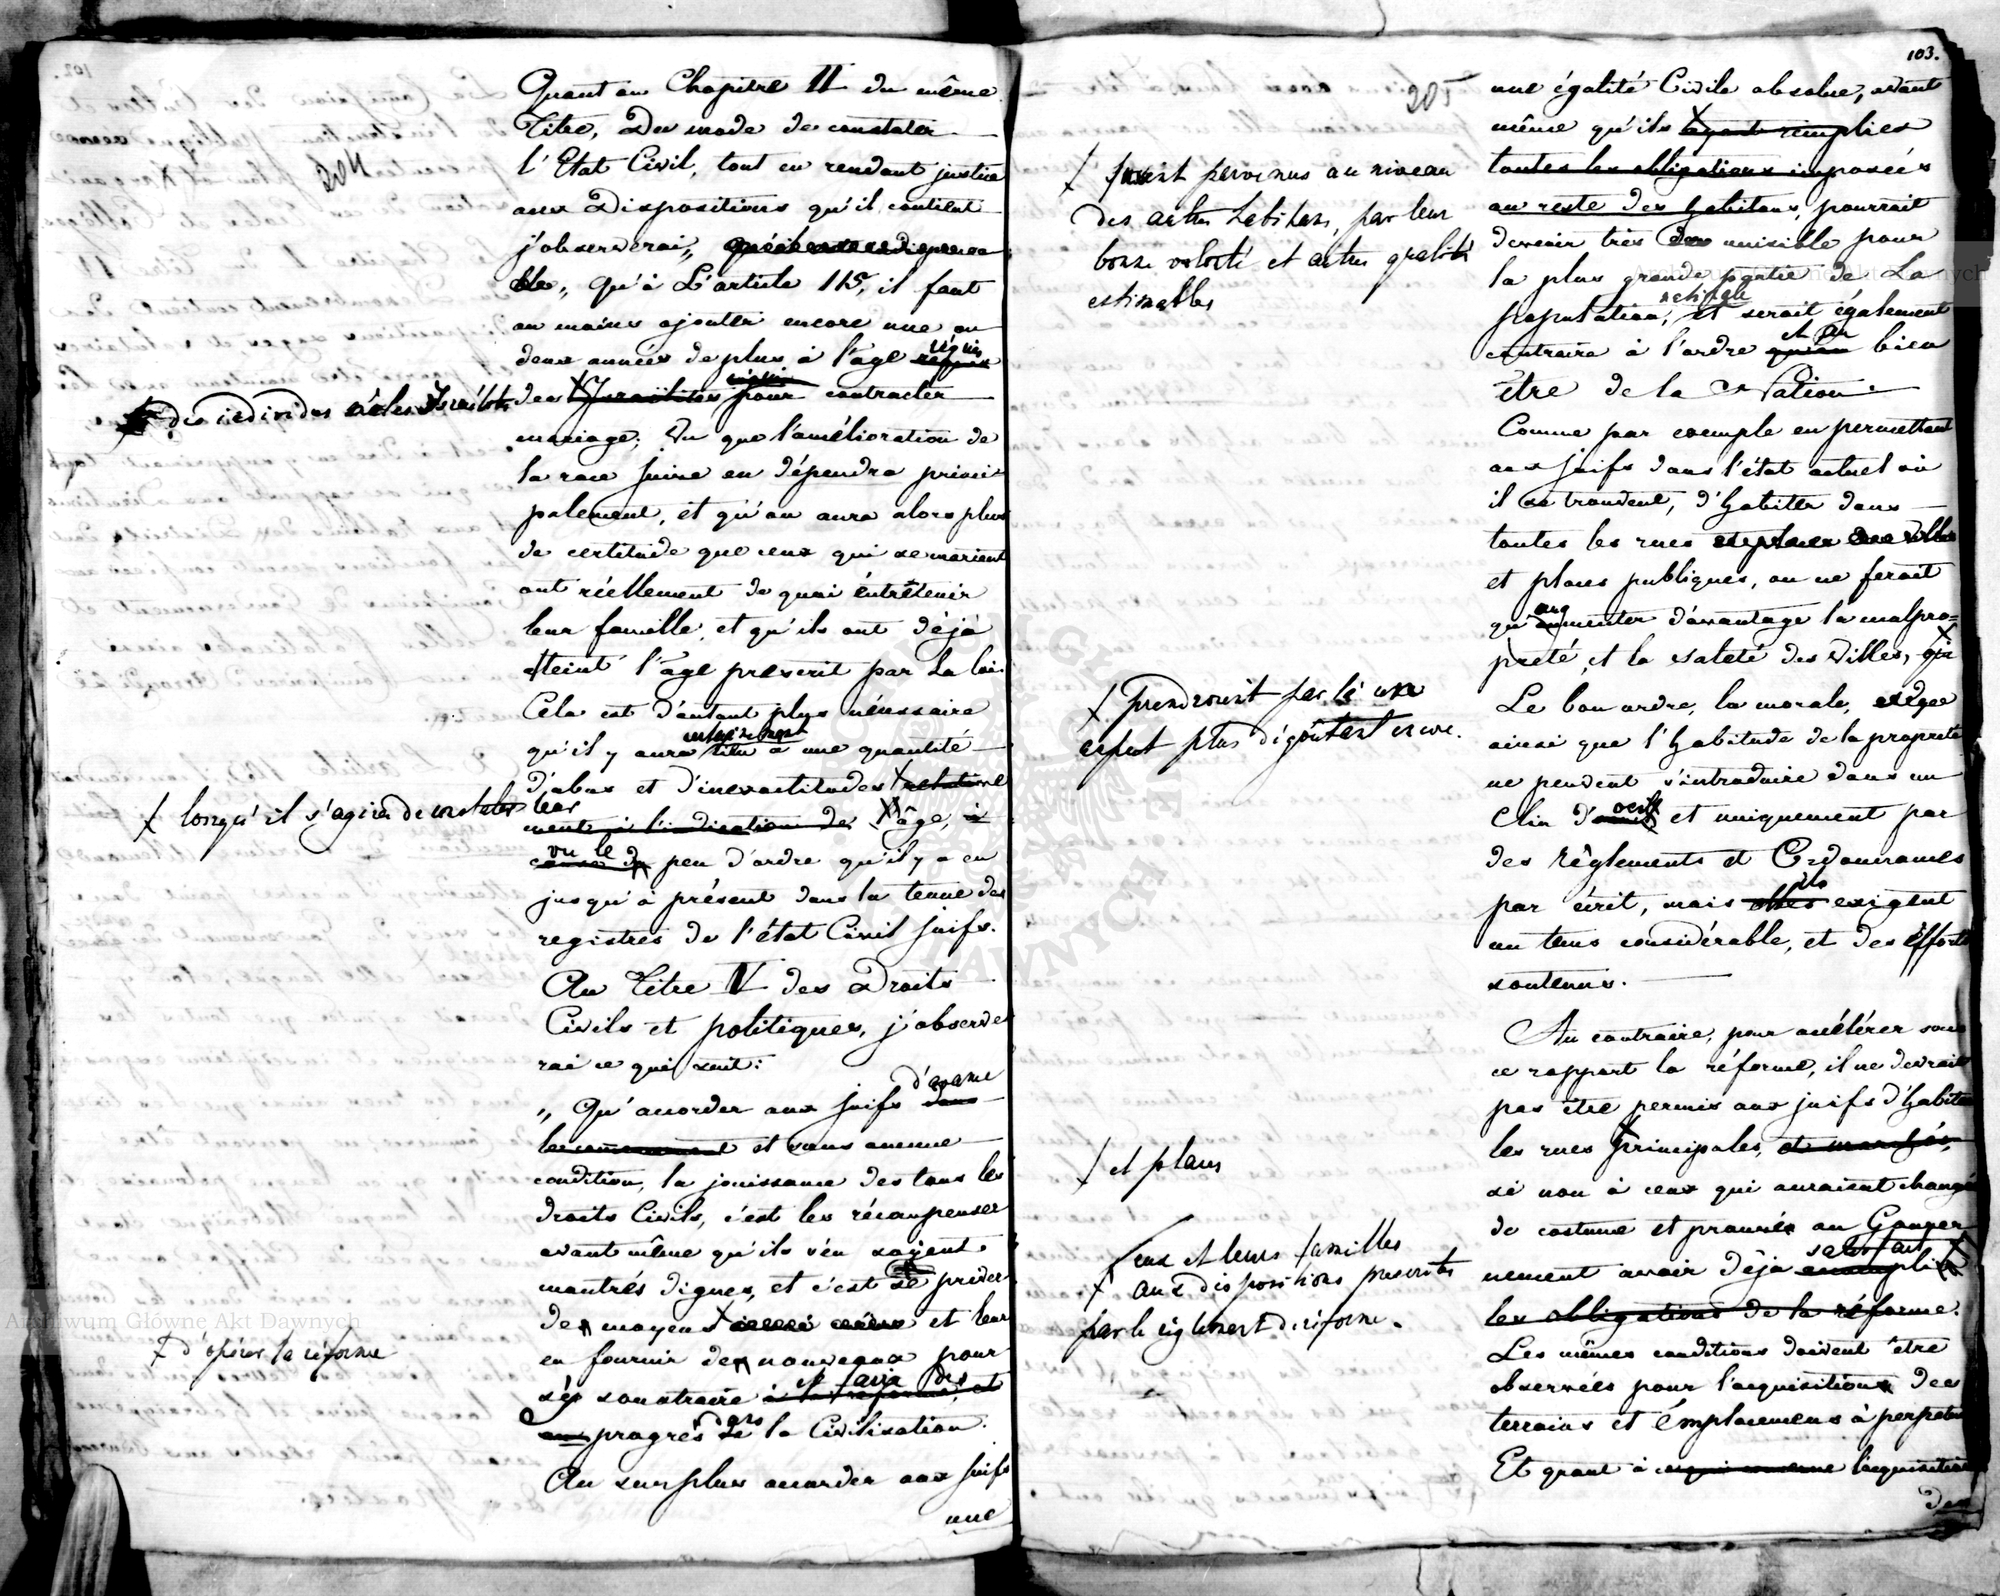 204
Quant au Chapitre II du même
Titre, Du mode de constater
l'Etat Civil, tout en rendant justice
aux Dispositions qu'il contient
j'observerai,,
qu'à L'article 115, il faut
au moins ajouter encore une ou
deux années de plus à l'âge requis
des Israëlites pour contracter
des individus Israélites
mariage; Vu que l'amélioration de
la race juive en dépendra princi
palement, et qu'on aura alors plus
de certitude que ceux qui se marient
ont réellement de quoi entretenir
leur famille, et qu'ils ont déjà
atteint l'âge prescrit par La loi.
Cela est d'autant plus nécessaire
certainement
qu'il y aura lieu à une quantité
d'abus et d'inexactitudes relative
lorsqu'il s'agira de constater leur
ment à l'indication de l'âge, à
vu le
cause de peu d'ordre qu'il y a eu
jusqu'à présent dans la tenue des
registres de l'état Civil juifs.
Au Titre V des Droits
Civils et politiques, j'observe
rai ce qui suit:
d'avance
,, Qu'accorder aux juifs dans
le commencement et sans aucune
condition, la jouissance des tous les
droits Civils, c'est les récompenser
avant même qu'ils s'en soyent
montrés dignes, et c'est se priver
des moyens et leur
d'opérer la réforme
en fournir des nouveaux pour
et faire des
s'y soustraire à la réforme, et
aux progrès dans la Civilisation.
Au surplus accorder aux juifs
une
103.
205
une égalité Civile absolue, avant
même qu'ils ayent remplies
toutes les obligations imposées
au reste des habitans, pourrait
soient parvenus au niveau
des autres habitans, par leur
bonne volonté et autres qualités
estimables
devenir très nuisible pour
la plus grande partie de La
population, et serait également
et au
contraire à l'ordre qu'au bien
être de la Nation.
Comme par exemple en permettant
aux juifs dans l'état actuel où
il se trouvent, d'habiter dans
toutes les rues
et places publiques, on ne ferait
qu'augmenter d'avantage la malpro=
preté, et la saleté des Villes, qui
prendroient par là un
aspect plus dégoûtant encore.
Le bon ordre, la morale,
ainsi que l'habitude de la propreté
ne peuvent s'introduire dans un
Clin d'oeil et uniquement par
des règlements et Ordonnances
ils
par écrit, mais elles exigent
un tems considérable, et des efforts
soutenus.
Au contraire, pour accélérer sous
ce rapport la réforme, il ne devrait
pas être permis aux juifs d'habiter
les rues principales, et marchés,
et places
si non à ceux qui auraient changé
de costume et prouvés au Gouver
satisfait
nement avoir déjà accompli
eux et leurs familles
aux dispositions prescrites
par le règlement de réforme.
les obligations de la réforme.
Les mêmes conditions doivent être
observées pour l'acquisition des
terrains et emplacemens à perpétui
Et quant à ce qui concerne l'acquisition
des
Archiwum Główne Akt Dawnych